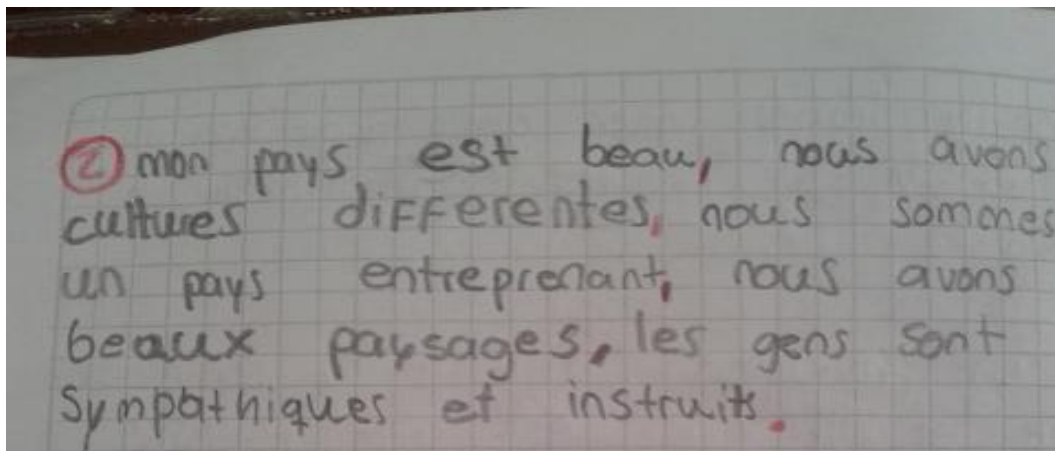 ② mon pays est beau, nous avons
cultures differentes, nous sommes
un pays entreprenant, nous avons
beaux paysages, les gens sont
sympathiques et instruits.